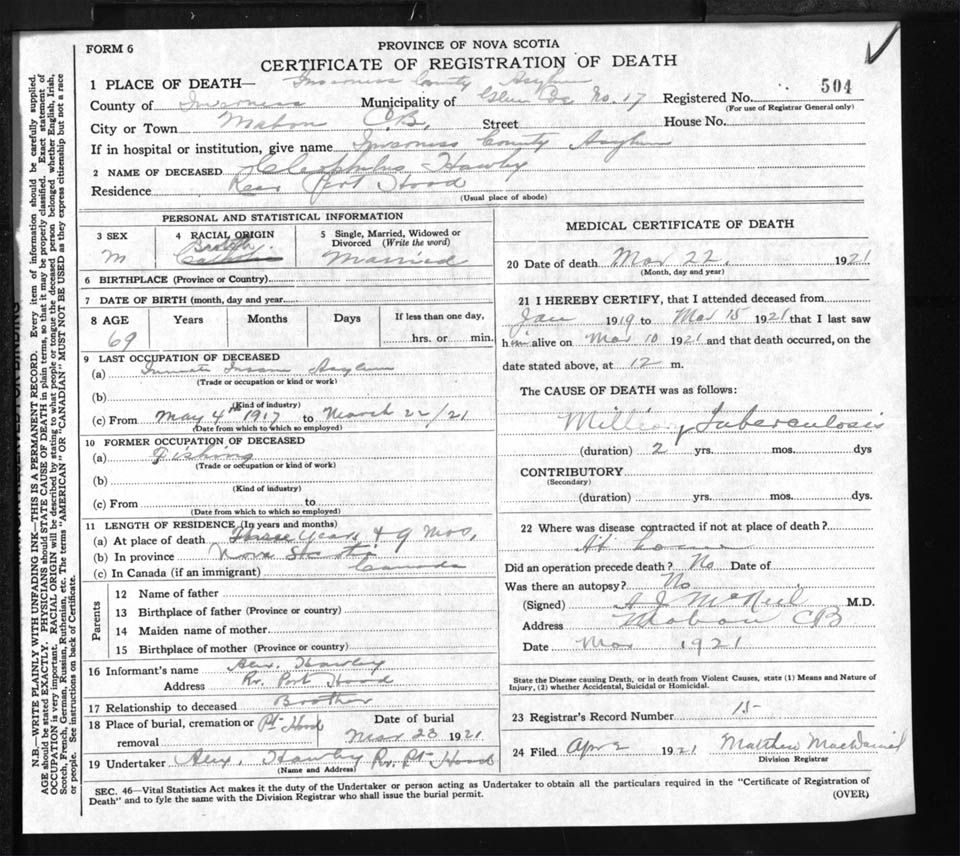 FORM 6
PROVINCE OF NOVA SCOTIA
CERTIFICATE OF REGISTRATION OF DEATH
1 PLACE OF DEATH— Inverness County Asylum
504
County of Inverness Municipality of No. 17 Registered No.
(For use of Registrar General only)
City or Town Mabou C.B. Street House No.
If in hospital or institution, give name Inverness County Asylum
2 NAME OF DECEASED Cleophelus Hawley
Residence Rear Port Hood
(Usual place of abode)
PERSONAL AND STATISTICAL INFORMATION
3 SEX
M
4 RACIAL ORIGIN
Catholic
5 Single, Married, Widowed or Divorced (Write the word)
Married
6 BIRTHPLACE (Province or Country)
7 DATE OF BIRTH (month, day and year
8 AGE Years Months Days If less than one day,
69 hrs. or min.
9 LAST OCCUPATION OF DECEASED
(a) Inmate Insane Asylum
(Trade or occupation or kind of work)
(b)
(Kind of industry)
(c) From May 4th 1917 to March 22/21
(Date from which to which so employed)
10 FORMER OCCUPATION OF DECEASED
(a) Fishing
(Trade or occupation or kind of work)
(b)
(Kind of industry)
(c) From to
(Date from which to which so employed)
11 LENGTH OF RESIDENCE (In years and months)
(a) At place of death Three years & 9 mos.
(b) In province Nova Scotia
(c) In Canada (if an immigrant) Canada
Parents
12 Name of father
13 Birthplace of father (Province or country)
14 Maiden name of mother
15 Birthplace of mother (Province or country)
16 Informant's name Alex. Hawley
Address Rr. Port Hood
17 Relationship to deceased Brother
18 Place of burial, cremation or removal Pt Hood
Date of burial
Mar 23 1921
19 Undertaker Alex. Hawley Rr. Pt Hood
(Name and Address)
MEDICAL CERTIFICATE OF DEATH
20 Date of death Mar 22, 1921
(Month, day and year)
21 I HEREBY CERTIFY, that I attended deceased from
Jan 1919 to Mar 15 1921 that I last saw
him alive on Mar 10 1921 and that death occurred, on the
date stated above, at 12 m.
The CAUSE OF DEATH was as follows:
Milliary Tuberculosis
(duration) 2 yrs. mos. dys
CONTRIBUTORY
(Secondary)
(duration) yrs. mos. dys.
22 Where was disease contracted if not at place of death?
At home
Did an operation precede death? No Date of
Was there an autopsy? No
(Signed) A J McNeil M.D.
Address Mabou CB
Date Mar 1921
State the Disease causing Death, or in death from Violent Causes, state (1) Means and Nature of
Injury, (2) whether Accidental, Suicidal or Homicidal.
23 Registrar's Record Number 15
24 Filed Apr 2 1921 Matthew MacDaniel
Division Registrar
SEC. 46—Vital Statistics Act makes it the duty of the Undertaker or person acting as Undertaker to obtain all the particulars required in the "Certificate of Registration of
Death" and to fyle the same with the Division Registrar who shall issue the burial permit.
(OVER)
N.B.—WRITE PLAINLY WITH UNFADING INK—THIS IS A PERMANENT RECORD. Every item of information should be carefully supplied.
AGE should be stated EXACTLY. PHYSICIANS should STATE CAUSE OF DEATH in plain terms, so that it may be properly classified. Exact statement of
OCCUPATION is very important. RACIAL ORIGIN will be described by stating to what people or tongue the deceased person belonged whether English, Irish,
Scotch, French, German, Russian, Ruthenian, etc. The terms "AMERICAN" OR "CANADIAN" MUST NOT BE USED as they express citizenship but not a race
or people. See instructions on back of Certificate.